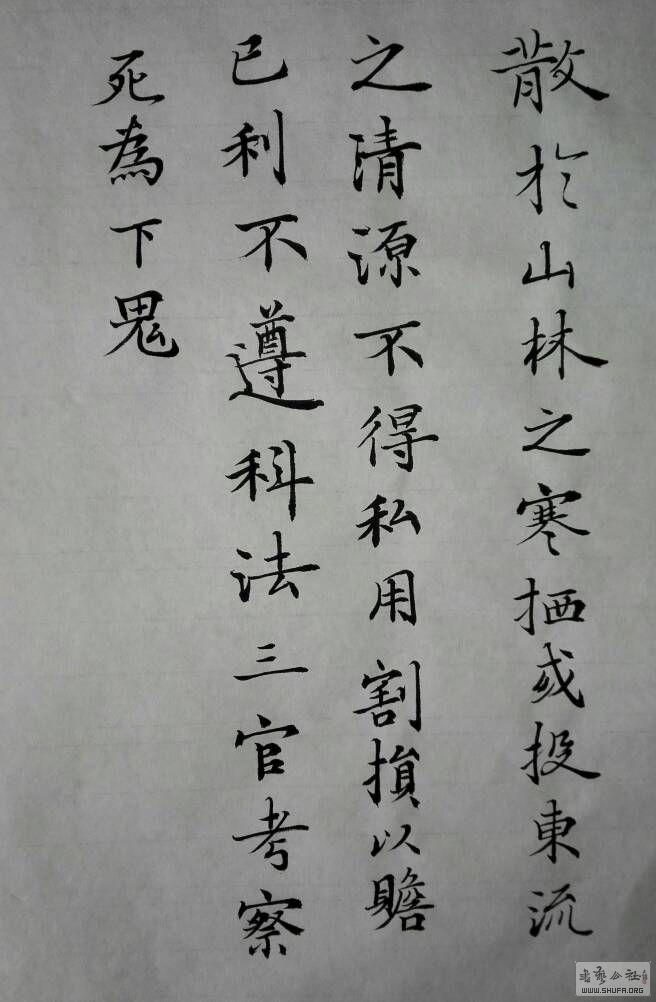 散於山林之寒栖或投東流
之清源不得私用割損以贍
已利不遵科法三官考察
死為下鬼
書藝公社
WWW.SHUFA.ORG